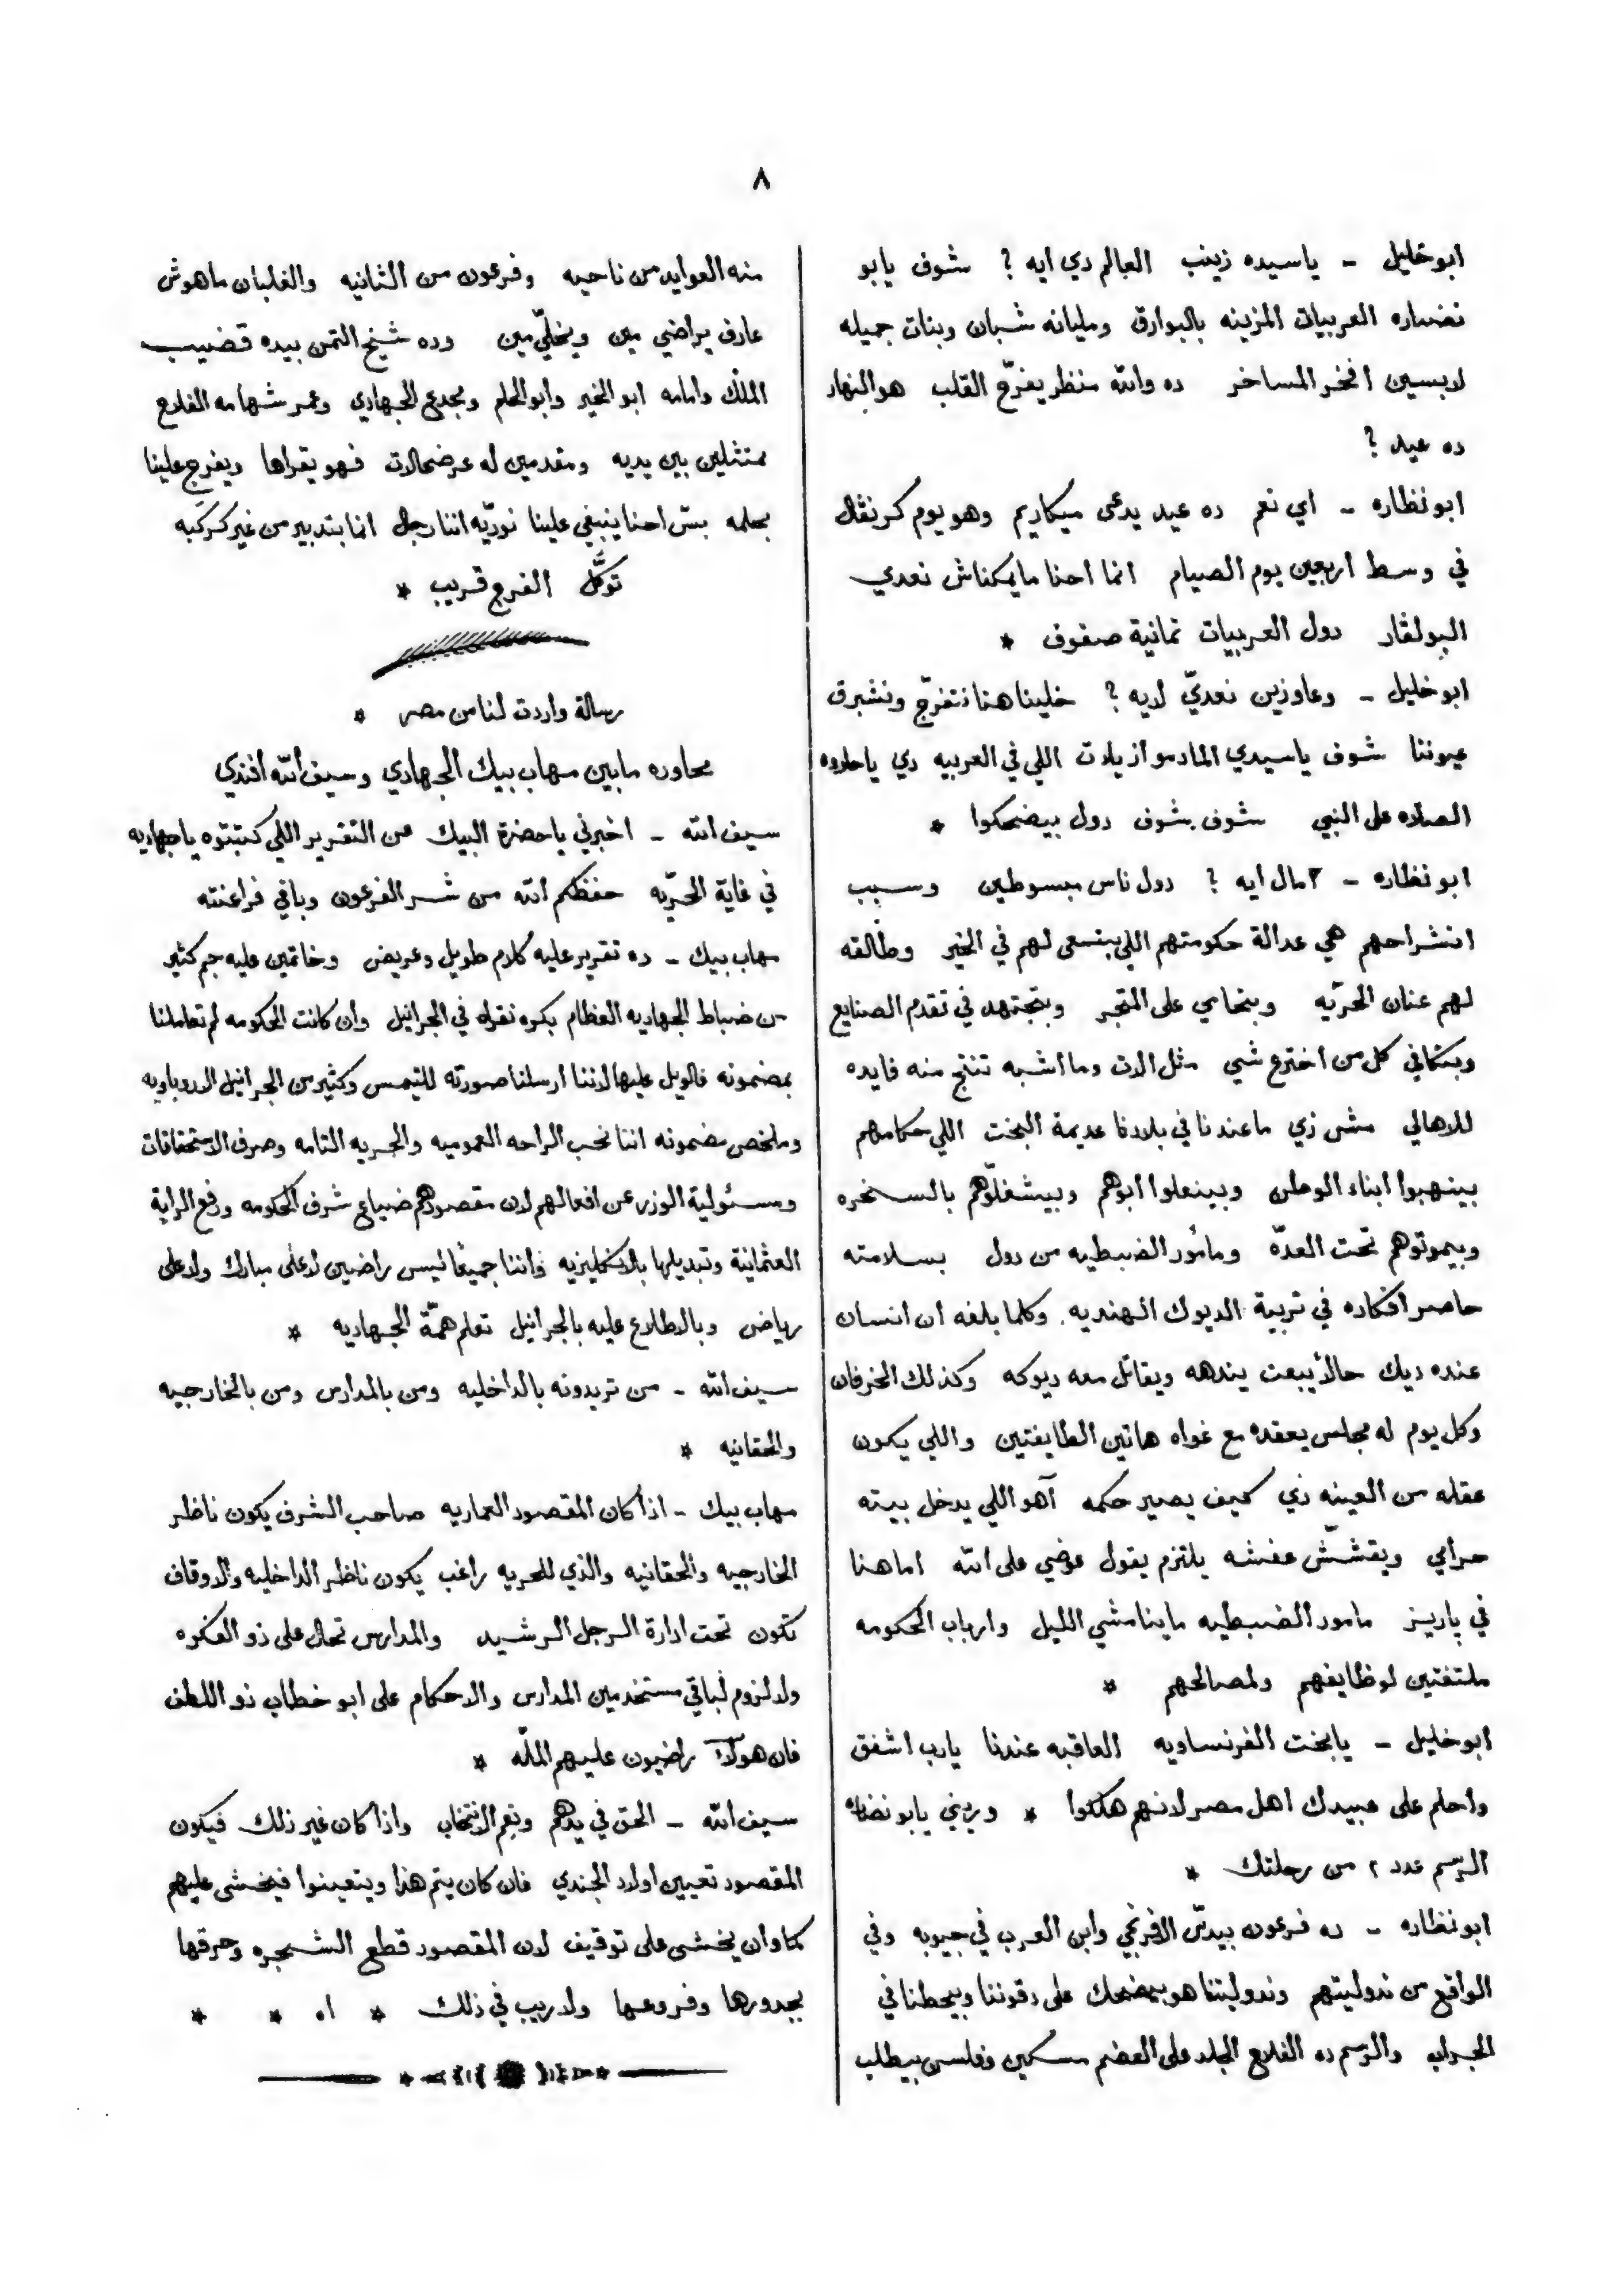 ٨
ابو خليل - ياسيده زينب العالم دي ايه ? شوف يابو
نضاره العربيات المزينه بالبوارق ومليانه شبان وبنات جميله
لابسين افخر المساخر ده والله منظر يفرّح القلب هو النهار
ده عيد ?
ابو نظاره - اي نعم ده عيد يدعى ميكاريم وهو يوم كرنڤال
في وسط اربعين يوم الصيام انما احنا مايمكناش نعدي
البولڤار دول العربيات ثمانية صفوف *
ابو خليل - وعاوزين نعديّ لايه ? خلينا هنا نتفرّج ونشبرق
عيوننا شوف ياسيدي المادموازيلات اللي في العربيه دي ياحلاوه
الصلاه على النبي شوف بشوف دول بيضحكوا *
ابو نظاره - امال ايه ? دول ناس مبسوطين وسبب
انشراحهم هي عدالة حكومتهم اللي بتسعى لهم في الخير وطالقه
لهم عنان الحرّيه وبتحامي على المتجر وبتجتهد في تقدم الصنايع
وبتكافي كل من اخترع شي مثل الات وما اشبه تنتج منه فايده
للاهالي مش زي ماعندنا في بلادنا عديمة البخت اللي حكامهم
بينهبوا ابناء الوطن وبينعلوا ابوهم وبيشغلّوهم بالسخره
وبيموتوهم تحت العدّه ومأمور الضبطيه من دول بسلامته
حاصر افكاره في تربية الديوك الهنديه وكلما بلغه ان انسان
عنده ديك حالاً يبعت يندهه ويقاتل معه ديوكه وكذلك الخرفان
وكل يوم له مجلس يعقده مع غواه هاتين الطايفتين واللي يكون
عقله من العينه دي كيف يصير حكمه آهو اللي يدخل بيته
حرامي ويقشّش عفشه يلتزم يقول عوضي على الله اما هنا
في پاريز مامور الضبطيه ماينامشي الليل وارباب الحكومه
ملتفتين لوظايفهم ولمصالحهم *
ابو خليل - يابخت الفرنساويه العاقبه عندنا يارب اشفق
واحلم على عبيدك اهل مصر لانهم هلكوا * وريني يابو نضاره
الرسم عدد ٢ من رحلتك *
ابو نظاره - ده فرعون بيدسّ الافرنجي وابن العرب في جيوبه وفي
الواقع من ندوليتهم وندوليتنا هو بيضحك على دقوننا وبيحطنا في
الجراب والرسم ده الفلاح الجلد على العضم مسكين وفلس بيطلب
منه العوايد من ناحيه وفرعون من الثانيه والغلبان ماهوش
عارف يراضي مين ويخلّي مين وده شيخ التمن بيده قضيب
الملك وامامه ابو الخير وابو الحلم ومجدع الجهادي وعمر شهامه الفلاح
ممتثلين بين يديه ومقدمين له عرضحالات فهو يقراها ويفرج علينا
بحلمه بسّ احنا ينبغي علينا نورّيه اننا رجال انما بتدبير من غير كركبه
توكَّل الفرج قريب *
رسالة واردت لنا من مصر *
محاوره مابين مهاب بيك الجهادي وسيف الله افندي
سيف الله - اخبرني ياحضرة البيك عن التقرير اللي كتبتوه ياجهاديه
في غاية الحرّيه حفظكم الله من شر الفرعون وباقي فراعنته
مهاب بيك - ده تقرير عليه كلام طويل وعريض وخاتمين عليه جم كثير
من ضباط الجهاديه العظام بكره نقراه في الجرانيل وان كانت الحكومه لم تعاملنا
بمضمونه فالويل عليها لاننا ارسلنا صورته للتيمس وكثير من الجرانيل الاروباويه
وملخص مضمونه اننا نحب الراحه العموميه والحريه التامه وصرف الاستحقاقات
ومسئولية الوزرا عن افعالهم لان مقصودهم ضياع شرف الحكومه ورفع الراية
العثمانية وتبديلها بالانكليزيه واننا جميعًا ليس راضيين لا على مبارك ولا على
رياض وبالاطلاع عليه بالجرانيل تعلم همّة الجهاديه *
سيف الله - من تريدونه بالداخليه ومن بالمدارس ومن بالخارجيه
والحقانيه *
مهاب بيك - اذا كان المقصود العماريه صاحب الشرف يكون ناظر
الخارجيه والحقانيه والذي للحريه راغب يكون ناظر الداخليه والاوقاف
تكون تحت ادارة الرجل الرشيد والمدارس تحال على ذو الفكره
ولا لزوم لباقي مستخدمين المدارس والاحكام على ابو خطاب ذو اللطف
فان هولآء راضيون عليهم الملّه *
سيف الله - الحق في يدهم ونعم الانتخاب واذا كان غير ذلك فيكون
المقصود تعيين اولاد الجندي فان كان يتم هذا ويتعينوا فيخشى عليهم
كما وان يخشى على توفيق لان المقصود قطع الشجره وحرقها
بجدورها وفروعها ولا ريب في ذلك * اه * *